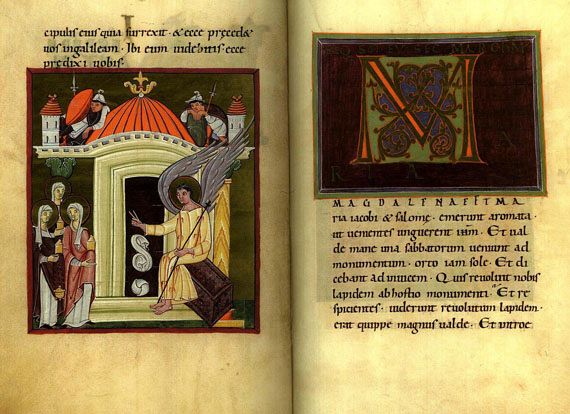 cipulis eius quia surrexit · & ecce preced&
uos ingalileam · Ibi eum uidebitis ecce
predixi nobis·
SEC MARCUM
M
RIA
MAGDALENA ET MA
ria iacobi & salome · emerunt aromata ·
ut uenientes unguerent ihm · Et ual
de mane una sabbatorum ueniunt ad
monumentum · orto iam sole · Et di
cebant ad inuicem · Quis reuoluit nobis
lapidem ab hostio monumenti · Et re
spicientes · uiderunt reuolutum lapidem ·
erat quippe magnus ualde · Et introe